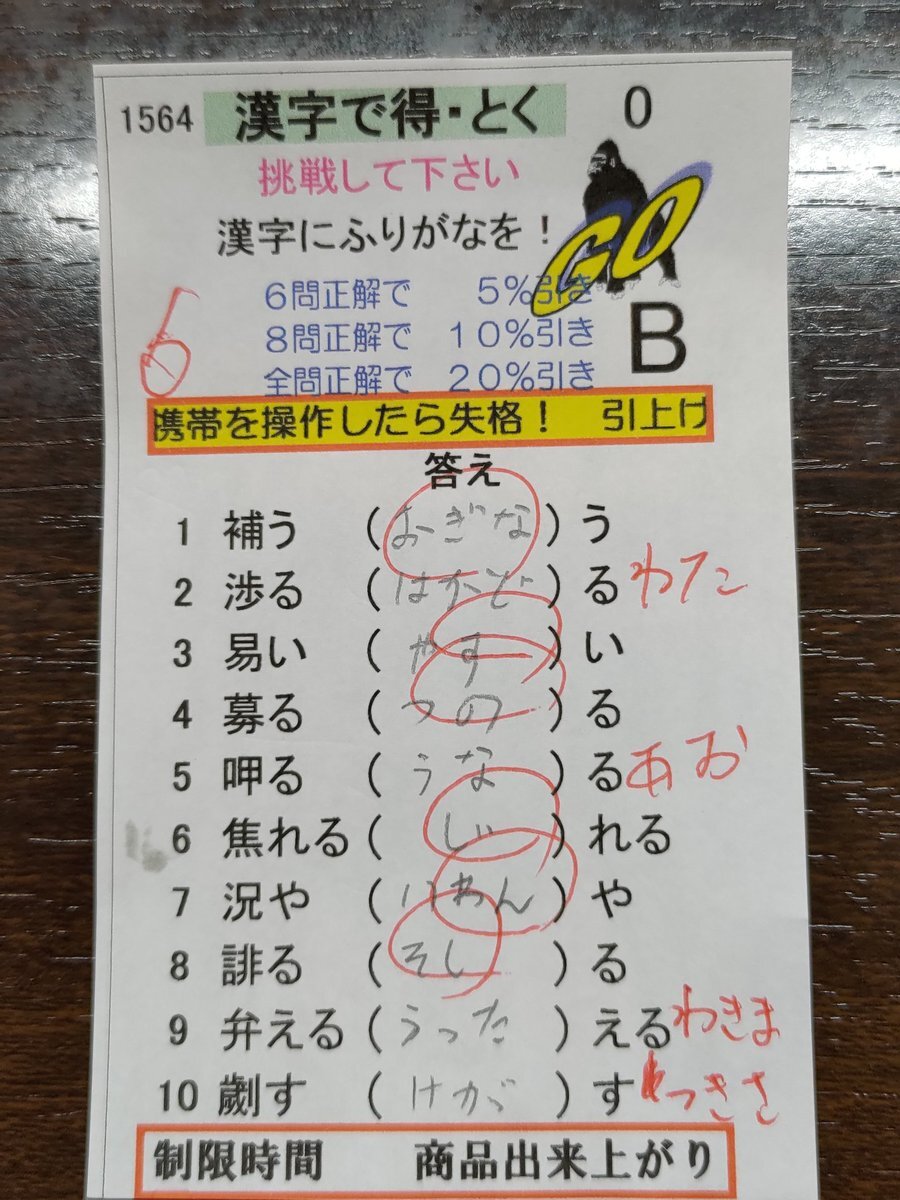 1564 漢字で得・とく 0
挑戦して下さい
漢字にふりがなを！
GO
6問正解で 5%引き
8問正解で 10%引き
全問正解で 20%引き
B
6
携帯を操作したら失格！ 引上げ
答え
1 補う (おぎな)う
2 渉る (はかど)る わた
3 易い (やす)い
4 募る (つの)る
5 呷る (うな)る あお
6 焦れる(じ)れる
7 況や (いわん)や
8 誹る (そし)る
9 弁える(うった)える わきま
10 劌す (けが)す つきさ
制限時間 商品出来上がり